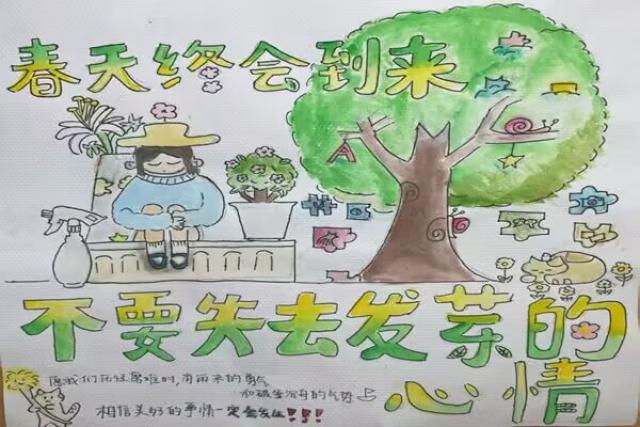 春天终会到来
A
不要失去发芽的
心情
愿我们历经磨难时,有再来的勇气
和破釜沉舟的气势
相信美好的事情一定会发生!!!